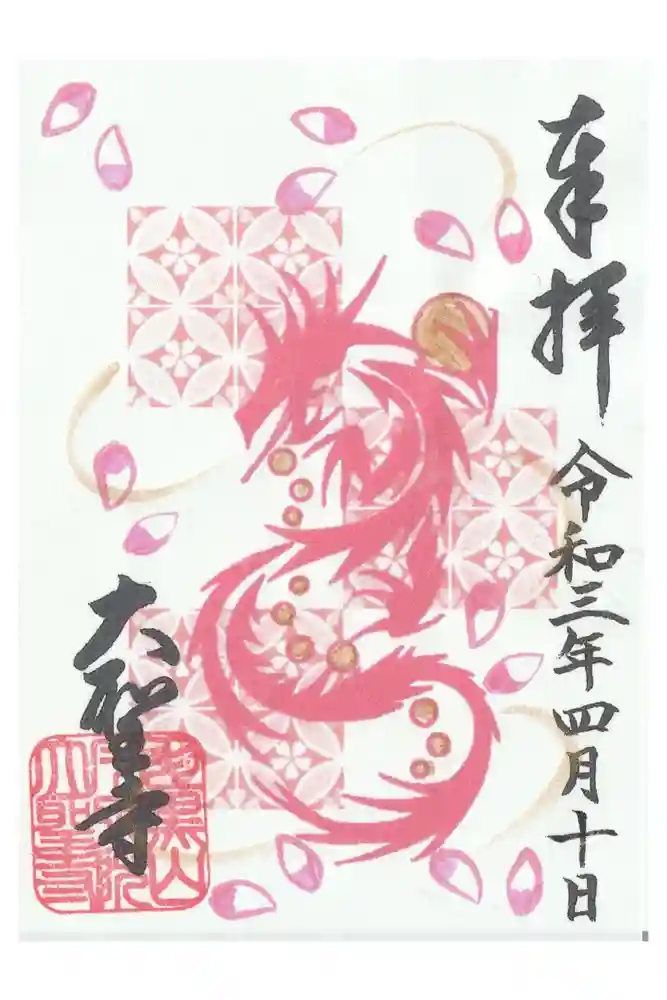 奉拝
令和三年四月十日
大聖寺